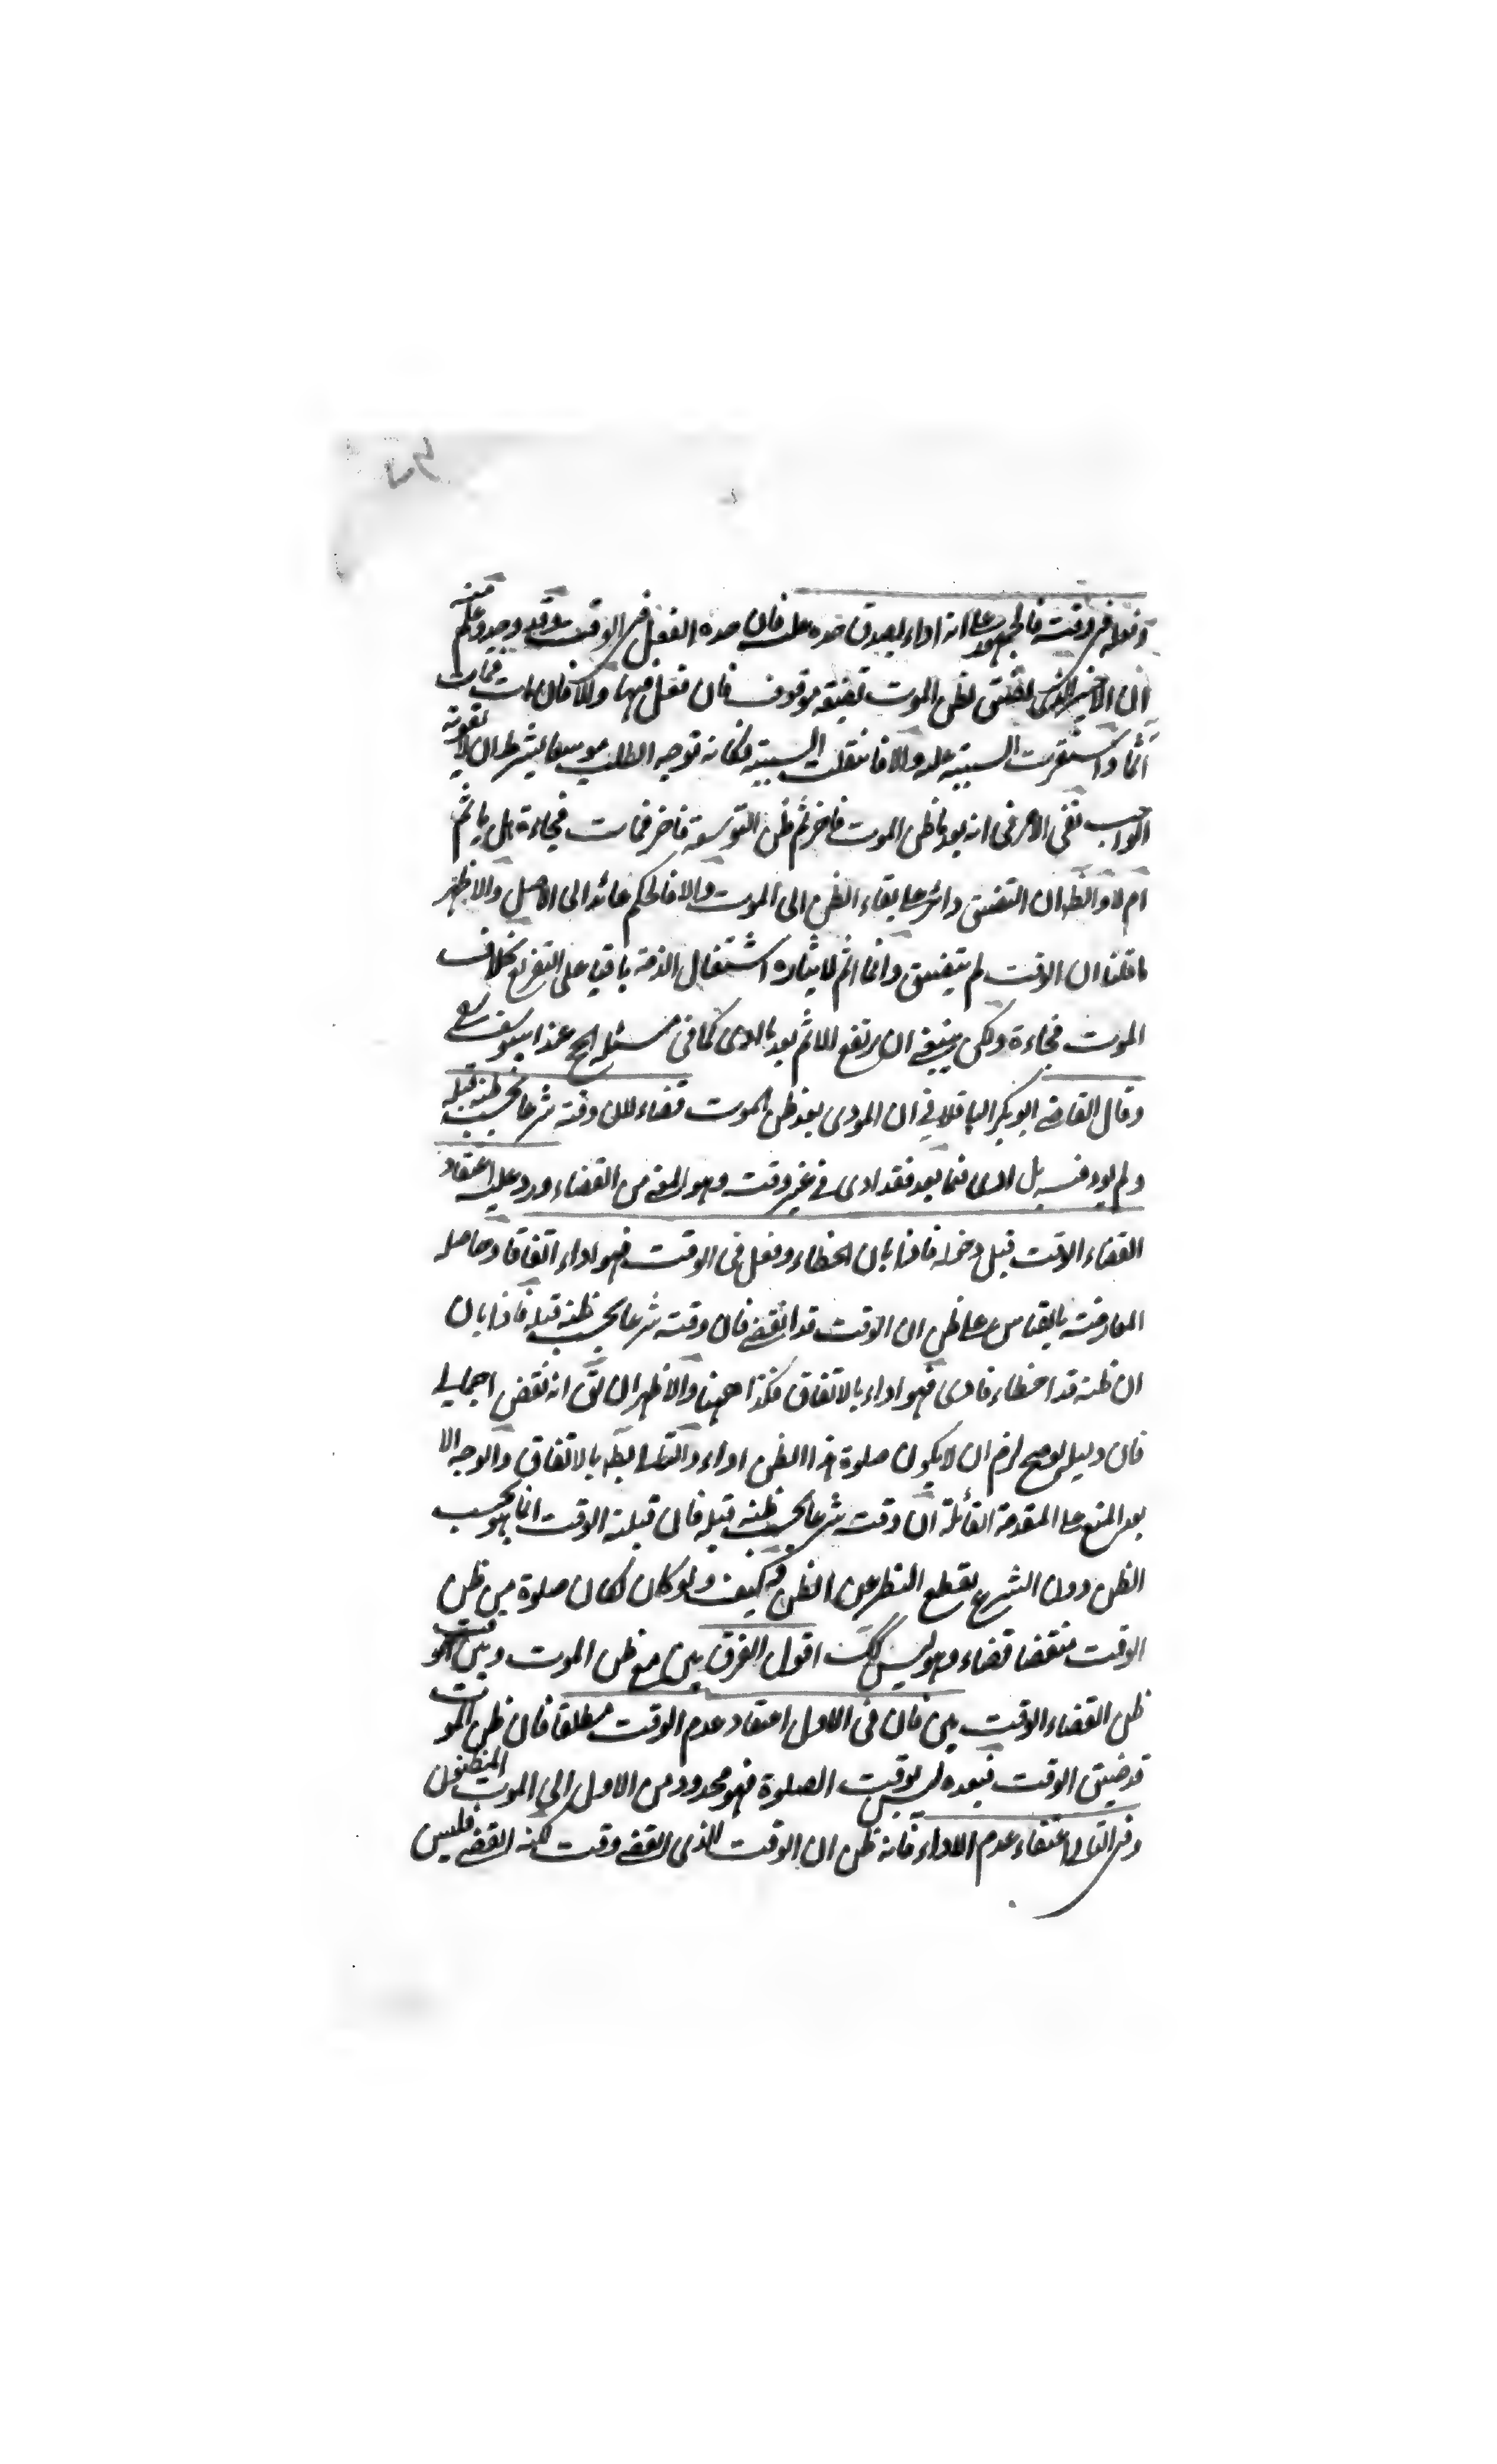 وفعله في وقته فالجمهور على انه اداء لصدق حده عليه فان حده الفعل في الوقت وقد وجد وعلم منه
ان الاخير الذي تضيق لظن الموت تضيقه موقوف فان فعل فيها والا فان مات فمات
آثما واستقرت السببية عليه والا فانتقلت السببية فكانه توجه الطلب موسعا بشرط ان لا يفوته
الواجب بقي الامر في انه بعد ما ظن الموت فاخر ثم ظن التوسعة فاخر فمات فجاءة هل ياثم
ام لا والظ ان التضيق دائر على بقاء الظن الى الموت والا فالحكم عائد الى الاصل والاظهر
ما قلنا ان الوقت لم يتضيق وانما اثم لايثاره اشتغال الذمة باقيا على التفريغ بخلاف
الموت فجاءة ولكن ينبغي ان يرتفع الاثم بعد ما ادى كما في مسئلة الحج عند ابيوسف رح
وقال القاضي ابو بكر الباقلاني ان المودى بعد ظن الموت قضاء لان وقته شرعا بحسب ظنه قبله
ولم يود فيه بل ادى فيما بعد فقد ادى في غير وقته وهو المعني من القضاء ورد عليه اعتقاد
انقضاء الوقت قبل دخوله فاذا بان الخطاء وفعل في الوقت فهو اداء اتفاقا وحاصله
المعارضة بالقياس على ظن ان الوقت قد انقضى فان وقته شرعا بحسب ظنه قبله فاذا بان
ان ظنه قد اخطاء فادى فهو اداء بالاتفاق فكذا ههنا والاظهر ان يق انه نقض اجمالي
فان دليله لو صح لزم ان لا يكون صلوة هذا الظن اداء والتالي بط بالاتفاق والوجه الا
بعد المنع على المقدمة القائلة ان وقته شرعا بحسب ظنه قبله فان قبلية الوقت انما هو بحسب
الظن دون الشرع بقطع النظر عن الظن وكيف ولو كان لكان صلوة من ظن
الوقت منقضا قضاء وهو ليس كك اقول الفرق بين مع ظن الموت وبين الموقت
ظن انقضاء الوقت بين فان في الاول اعتقاد عدم الوقت مطلقا فان ظن الموت
قد ضيق الوقت فبعده ليس بوقت الصلوة فهو محدود من الاول الى الموت المظنون
وفي الثاني اعتقاد عدم الاداء فانه ظن ان الوقت الذي انقضى وقت لكنه انقضى فليس